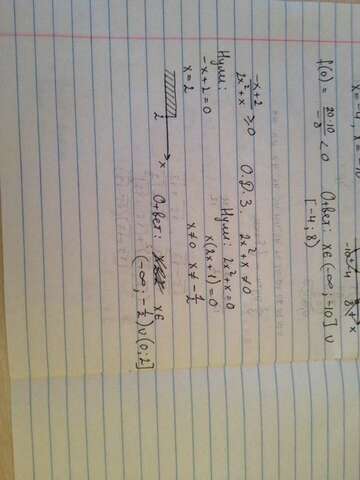 x = -4, x = -10
-10 -4 8 x
f(0) = 20·10 / -8 < 0 Ответ: x∈(-∞; -10] ∪
[-4; 8)
-x+2 / 2x²+x ≥ 0 О.Д.З. 2x²+x ≠ 0
Нули: Нули: 2x²+x = 0
-x+2=0 x(2x+1) = 0
x = 2 x ≠ 0 x ≠ -1/2
2 x Ответ: x∈
(-∞; -1/2) ∪ (0; 2]